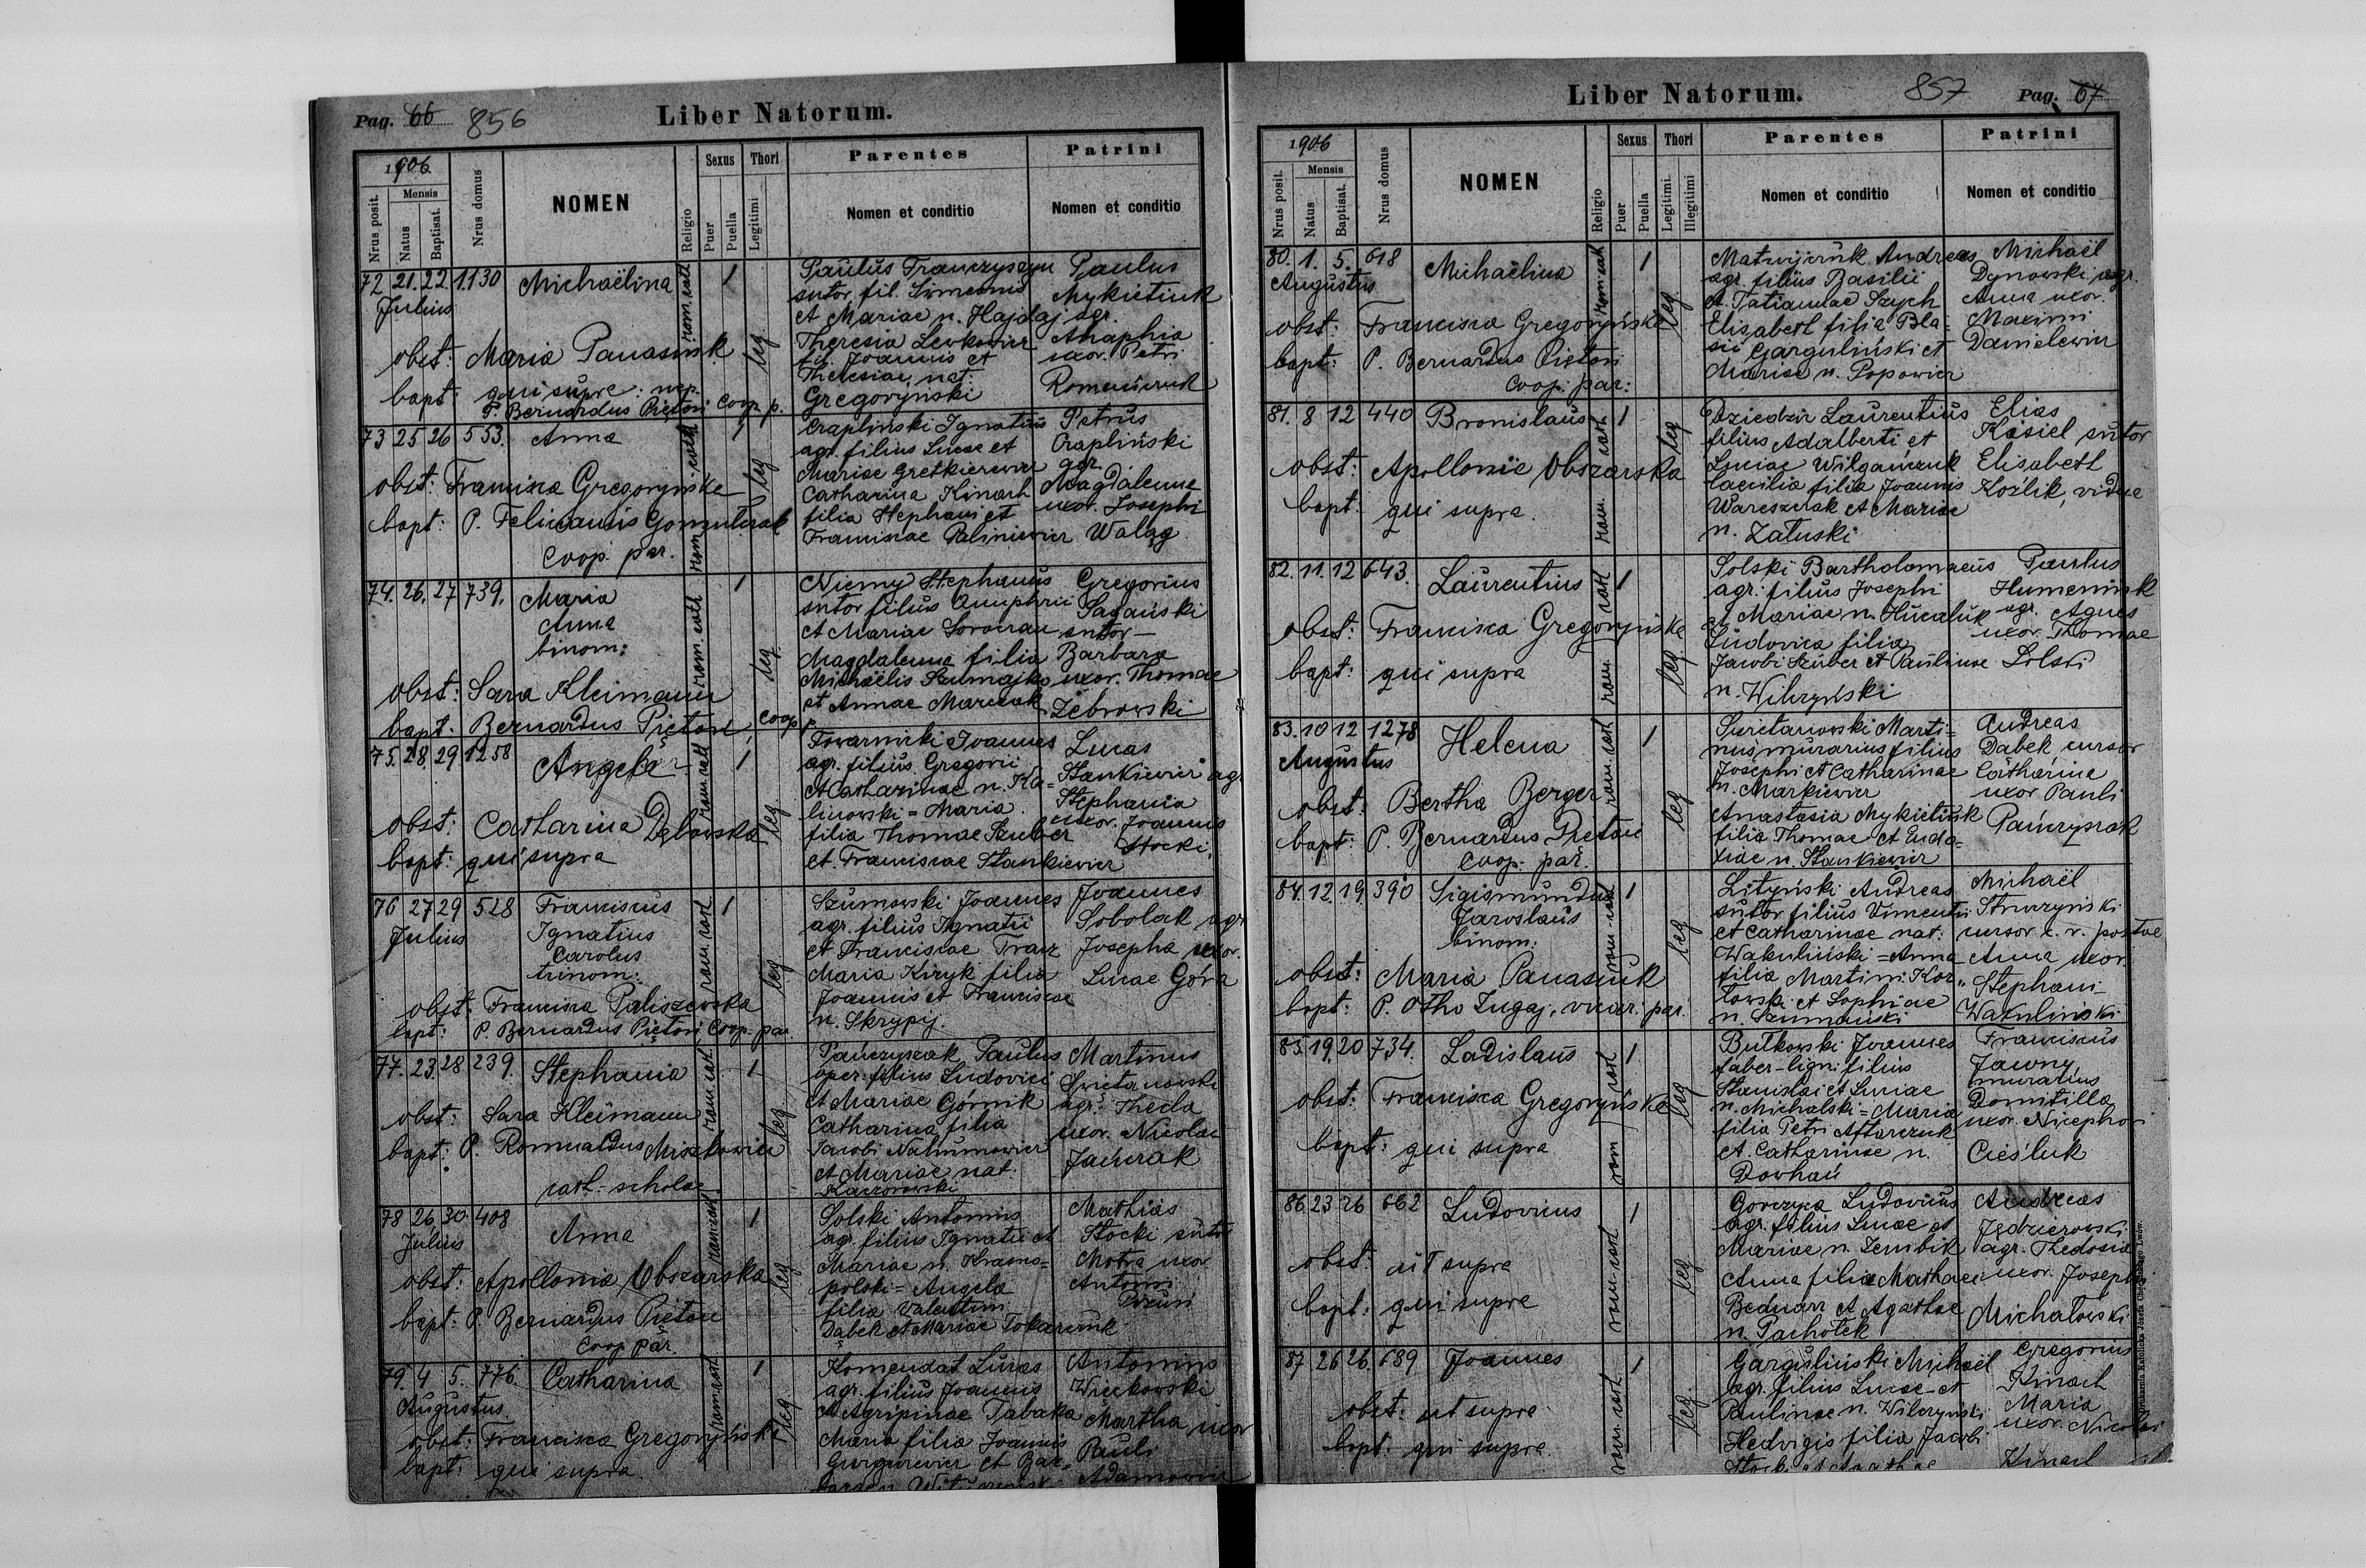 Pag. 66 856
Liber Natorum.
1906
Nrus posit.
Mensis
Natus
Baptisat.
Nrus domus
NOMEN
Religio
Sexus
Puer
Puella
Thori
Legitimi
Parentes
Nomen et conditio
Patrini
Nomen et conditio
72 21. 22. 1130 Michaëlina rom. cath. 1 leg
Julius
obst: Maria Panasiuk
bapt: qui supre: nep.
P. Bernardus Piętoń coop. p.
Paulus
sutor, fil. Simeonis
et Mariae n. Hajdaj
Theresia Levkowicz
fil. Joannis et
Theresiae, nat.
Gregoryński
Paulus
Mykietiuk
agr.
Ahaphia
uxor. Petri
73 25 26 553. Anna rom. cath. 1 leg
obst: Francisca Gregoryńska
bapt: P. Felicianus
coop. par.
Crapliński Ignatius
agr. filius Lucae et
Mariae Gretkierewicz
Catharina Kinach
filia Stephani et
Franciscae Paliniewicz
Petrus
Crapliński
agr
Magdalenna
uxor. Josephi
Waląg
74. 26. 27 739. Maria rom. cath 1 leg
Anna
binom:
obst: Sara Kleimann
bapt. Bernardus Piętoń, coop p.
Niemy Stephanus
sutor filius Onuphrii
et Mariae
Magdalenna filia
Michaëlis Szumajko
et Annae Marczak
Gregorius
Sagański
sutor
Barbara
uxor. Thomae
Żebrowski
75. 28. 29 1258 Angela rom. cath 1 leg
obst: Catharina Dąbowska
bapt: qui supra
Towarnicki Joannes
agr. filius Gregorii
et Catharinae n. Ka=
linowski = Maria
filia Thomae Szuber
et Franciscae Stankiewicz
Lucas
Stankiewicz agr
Stephania
uxor. Joannis
Stocki
76 27 29 528 Franciscus rom. cath 1 leg
Julius Ignatius
Carolus
trinom:
obst: Francisca Paliszewska
bapt: P. Bernardus Piętoń, coop. par.
Szumowski Joannes
agr. filius Ignatii
et Franciscae Tracz
Maria Kizyk filia
Joannis et Franciscae
n. Skrypij.
Joannes
Sobolak agr
Josepha uxor.
Lucae Góra
77. 23. 28 239. Stephania rom. cath 1 leg.
obst: Sara Kleimann
bapt: P. Romualdus Miszkowicz
cath. scholae
Pańczyszak Paulus
oper. filius Ludovici
et Mariae Górnik
Catharina filia
Jacobi Nahumowicz
et Mariae nat.
Kaczorowski
Martinus
Swietanowski
agr. Thecla
uxor. Nicolai
78 26. 30. 408 Anna rom. cath 1 leg
Julius
obst: Apollonia Obszarska
bapt: P. Bernardus Piętoń
coop par.
Solski Antonius
agr. filius Ignatii et
Mariae n. Krasno=
polski = Angela
filia Valentini
Dąbek et Mariae Tokarczuk
Mathias
Stocki sutor
Motra uxor
Antonii
79. 4 5. 776. Catharina rom. cath 1 leg
Augustus
obst: Francisca Gregoryńska
bapt: qui supra
Komendat Lucas
agr. filius Joannis
et Agripinae Tabaka
Maria filia Joannis
Gurgurewicz et Bar=
Antonius
Wieckowski
Martha uxor
Pauli
Adamowicz
Liber Natorum.
857 Pag. 67
1906
Nrus posit.
Mensis
Natus
Baptisat.
Nrus domus
NOMEN
Religio
Sexus
Puer
Puella
Thori
Legitimi.
Illegitimi
Parentes
Nomen et conditio
Patrini
Nomen et conditio
80. 1. 5. 618 Michaëlina rom. cath 1 leg.
Augustus
obst: Francisca Gregoryńska
bapt: P. Bernardus Piętoń
coop. par:
Matwijczuk Andreas
agr. filius Basilii
et Tatiannae Szych
Elisabeth filia Bla=
sii Garguliński et
Mariae n. Popowicz
Michaël
Dynowski agr.
Anna uxor.
Maximi
Danielewicz
81. 8 12 440 Bronislaus rom. cath 1 leg
obst: Apollonie Obszarska
bapt: qui supra.
Dziedzic Laurentius
filius Adalberti et
Luciae
Caecilia filia Joannis
Wareszczak et Mariae
n. Załuski
Elias
Kasiel sutor
Elisabeth
Koźlik, vidue
82. 11. 12 643. Laurentius rom. cath 1 leg.
obst: Francisca Gregoryńska
bapt: qui supra
Solski Bartholomaeus
agr. filius Josephi
et Mariae n. Hucaluk
Ludovica filia
Jacobi Szuber et Paulinae
n. Wilczyński
Paulus
Humeniuk
agr. Agnes
uxor. Thomae
Solski
83. 10 12 1278 Helena rom. cath 1 leg
Augustus
obst: Bertha Berger
bapt: P. Bernardus Piętoń
coop. par.
Swietanowski Marti=
nus murarius filius
Josephi et Catharinae
n. Markiewicz
Anastasia Mykietiuk
filia Thomae et Eudo=
xiae n. Stankiewicz
Andreas
Dąbek cursor
Catharina
uxor Pauli
Pańczyszak
84. 12. 19. 390 Sigismundus rom. cath 1 leg
Jaroslaus
binom:
obst: Maria Panasiuk
bapt: P. Otho Zugaj, vicar. par.
Lityński Andreas
sutor filius Vincentii
et Catharinae nat:
Wakuliński = Anna
filia Martini Koz=
łowski et Sophiae
n. Szumański
Michaël
Struczyński
cursor c. r. postae
Anna uxor.
Stephani
Wakuliński
85. 19. 20 734. Ladislaus rom cath 1 leg
obst: Francisca Gregoryńska
bapt: qui supra
Butkowski Joannes
faber-ligni filius
Stanislai et Luciae
n. Michalski = Maria
filia Petri Aftarczuk
et Catharinae n.
Dowhań
Franciscus
Jawny
muratius
Domitilla
uxor. Nicephori
Cieśluk
86 23 26 662 Ludovicus rom. cath 1 leg
obst: ut supra
bapt: qui supre
Gorczyca Ludovicus
agr. filius Lucae et
Mariae n. Zembik
Anna filia Mathaei
Bednarz et Agathae
n. Pachołek
Andreas
Jędrzerowski
agr. Thedosia
uxor. Josephi
Michałowski
87 26 26. 689 Joannes rom. cath 1 leg.
obst: ut supra
bapt: qui supre
Garguliński Michaël
agr. filius Lucae et
Paulinae n. Wilczyński
Hedvigis filia Jacobi
Gregorius
Kinach
Maria
uxor. Nicolai
Kinach